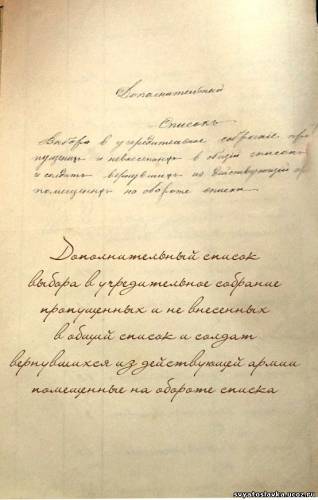 Дополнительный
Списокъ
Выбора в учредительное собрание про
пущенных и невнесенных в общий список
и солдат вернувшихся из действующей ар
помещенных на обороте списка
Дополнительный список
выбора в учредительное собрание
пропущенных и не внесенных
в общий список и солдат
вернувшихся из действующей армии
помещенные на обороте списка
svyatoslavka.ucoz.ru